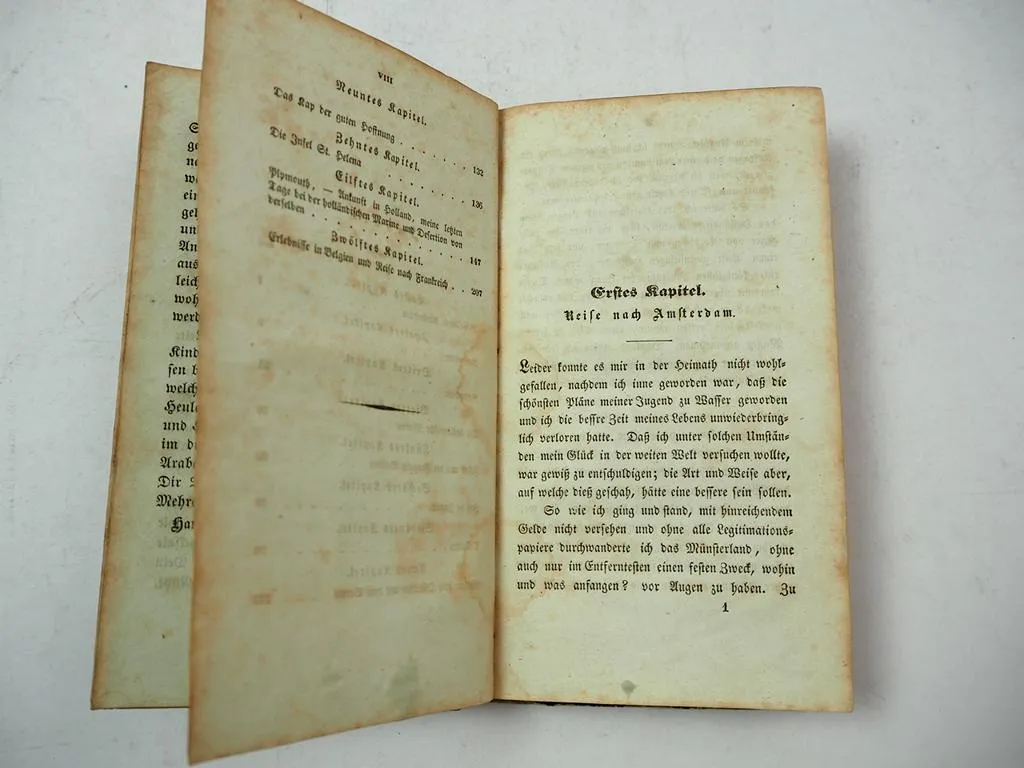 ge
ne
we
ein
gel
un
An
aus
leich
woh
werd
Kind
sen b
welch
Heule
und
im d
Arab
Dir
Mehre
Har
VIII
Neuntes Kapitel.
Das Kap der guten Hoffnung . . . . . . . 132
Zehntes Kapitel.
Die Insel St. Helena . . . . . . . 136
Eilftes Kapitel.
Plymouth, — Ankunft in Holland, meine letzten
Tage bei der holländischen Marine und Desertion von
derselben . . . . . . . . . . 147
Zwölftes Kapitel.
Erlebnisse in Belgien und Reise nach Frankreich . . 207
Erstes Kapitel.
Reise nach Amsterdam.
Leider konnte es mir in der Heimath nicht wohl-
gefallen, nachdem ich inne geworden war, daß die
schönsten Pläne meiner Jugend zu Wasser geworden
und ich die beßre Zeit meines Lebens unwiederbring-
lich verloren hatte. Daß ich unter solchen Umstän-
den mein Glück in der weiten Welt versuchen wollte,
war gewiß zu entschuldigen; die Art und Weise aber,
auf welche dieß geschah, hätte eine bessere sein sollen.
So wie ich ging und stand, mit hinreichendem
Gelde nicht versehen und ohne alle Legitimations-
papiere durchwanderte ich das Münsterland, ohne
auch nur im Entferntesten einen festen Zweck, wohin
und was anfangen? vor Augen zu haben. Zu
1